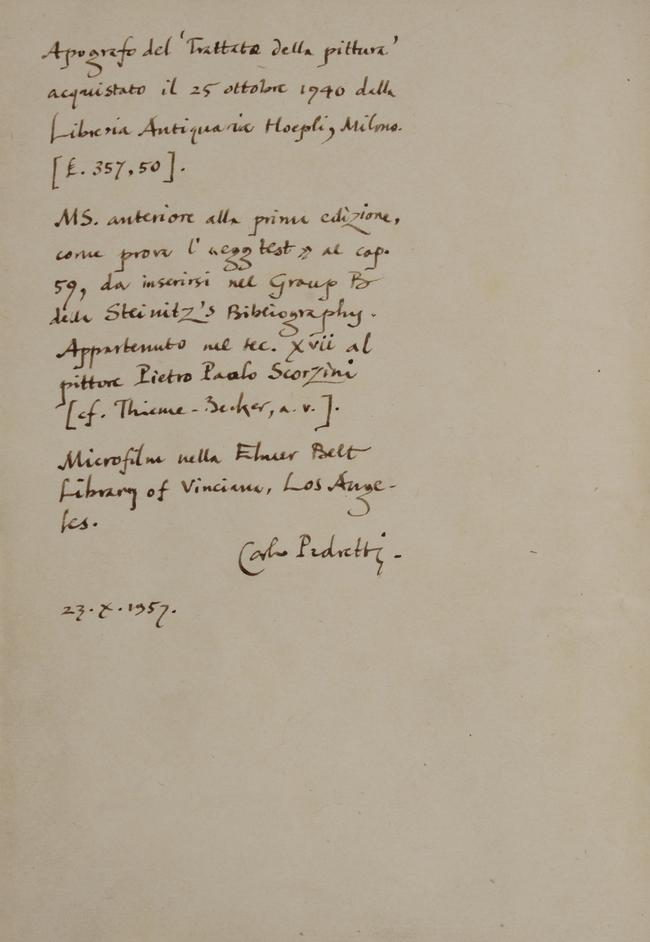 Apografo del 'Trattato della pittura'
acquistato il 25 ottobre 1940 dalla
Libreria Antiquaria Hoepli, Milano.
[£. 357,50].
MS. anteriore alla prima edizione,
come prova l' «egg test» al cap.
59, da inserirsi nel Group B
della Steinitz's Bibliography.
Appartenuto nel sec. XVII al
pittore Pietro Paolo Scorzini
[cf. Thieme-Becker, a. v.].
Microfilm nella Elmer Belt
Library of Vinciana, Los Ange-
les.
Carlo Pedretti -
23. X. 1957.